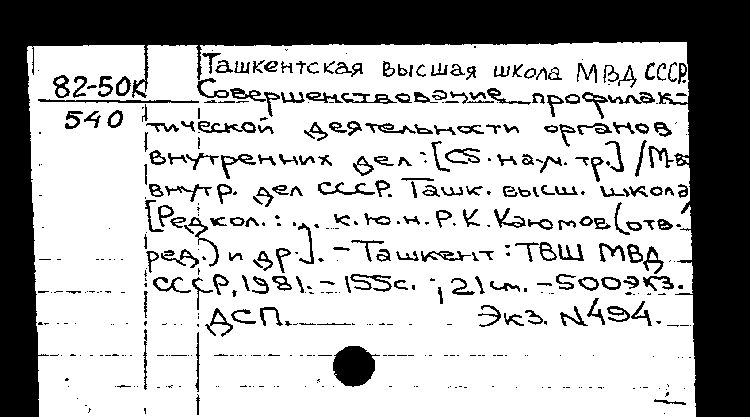 Ташкентская высшая школа МВД СССР.
82-50к
Совершенствование профилак-
540
тической деятельности органов
внутренних дел: [Сб. науч. тр.] / М-во
внутр. дел СССР. Ташк. высш. школа
[Редкол.: ... к.ю.н. Р.К. Каюмов (отв.
ред.) и др.]. – Ташкент: ТВШ МВД
СССР, 1981. – 155с. ; 21см. – 500экз.
ДСП. Экз. N494.